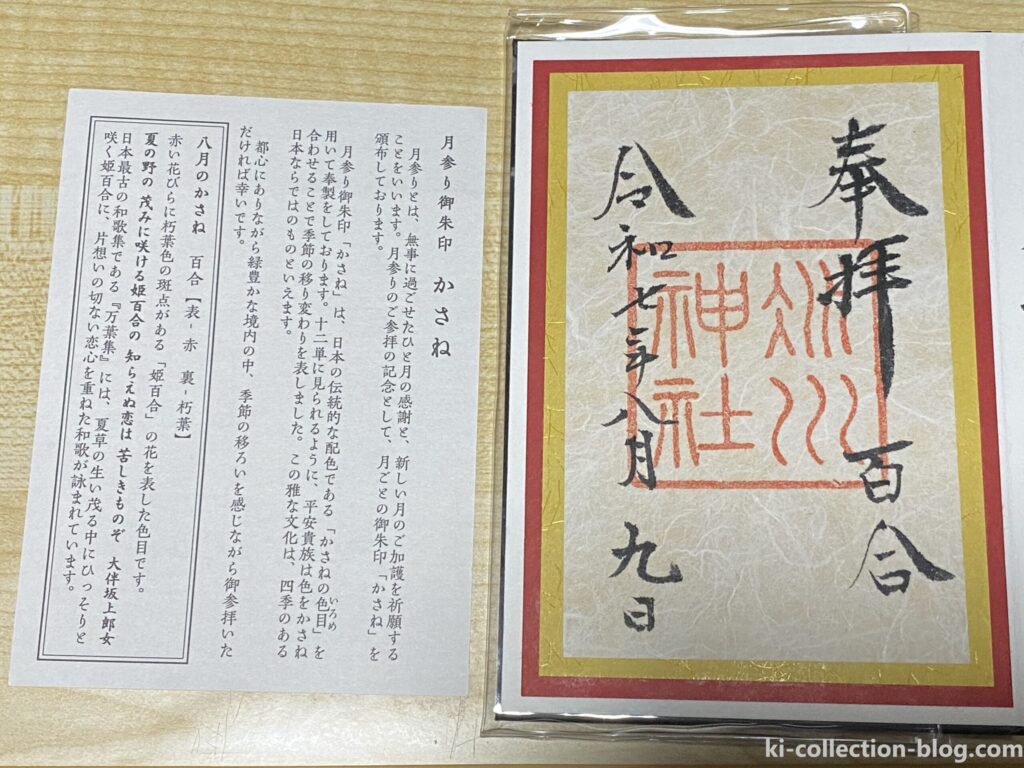 奉拝 百合
冰川
神社
令和七年八月九日
月参り御朱印 かさね
月参りとは、無事に過ごせたひと月の感謝と、新しい月のご加護を祈願する
ことをいいます。月参りのご参拝の記念として、月ごとの御朱印「かさね」を
頒布しております。
月参り御朱印「かさね」は、日本の伝統的な配色である「かさねの色目」を
いろめ
用いて奉製をしております。十二単に見られるように、平安貴族は色をかさね
合わせることで季節の移り変わりを表しました。この雅な文化は、四季のある
日本ならではのものといえます。
都心にありながら緑豊かな境内の中、季節の移ろいを感じながら御参拝いた
だければ幸いです。
八月のかさね 百合【表-赤 裏-朽葉】
赤い花びらに朽葉色の斑点がある「姫百合」の花を表した色目です。
夏の野の 茂みに咲ける姫百合の 知らえぬ恋は 苦しきものぞ 大伴坂上郎女
日本最古の和歌集である『万葉集』には、夏草の生い茂る中にひっそりと
咲く姫百合に、片想いの切ない恋心を重ねた和歌が詠まれています。
ki-collection-blog.com